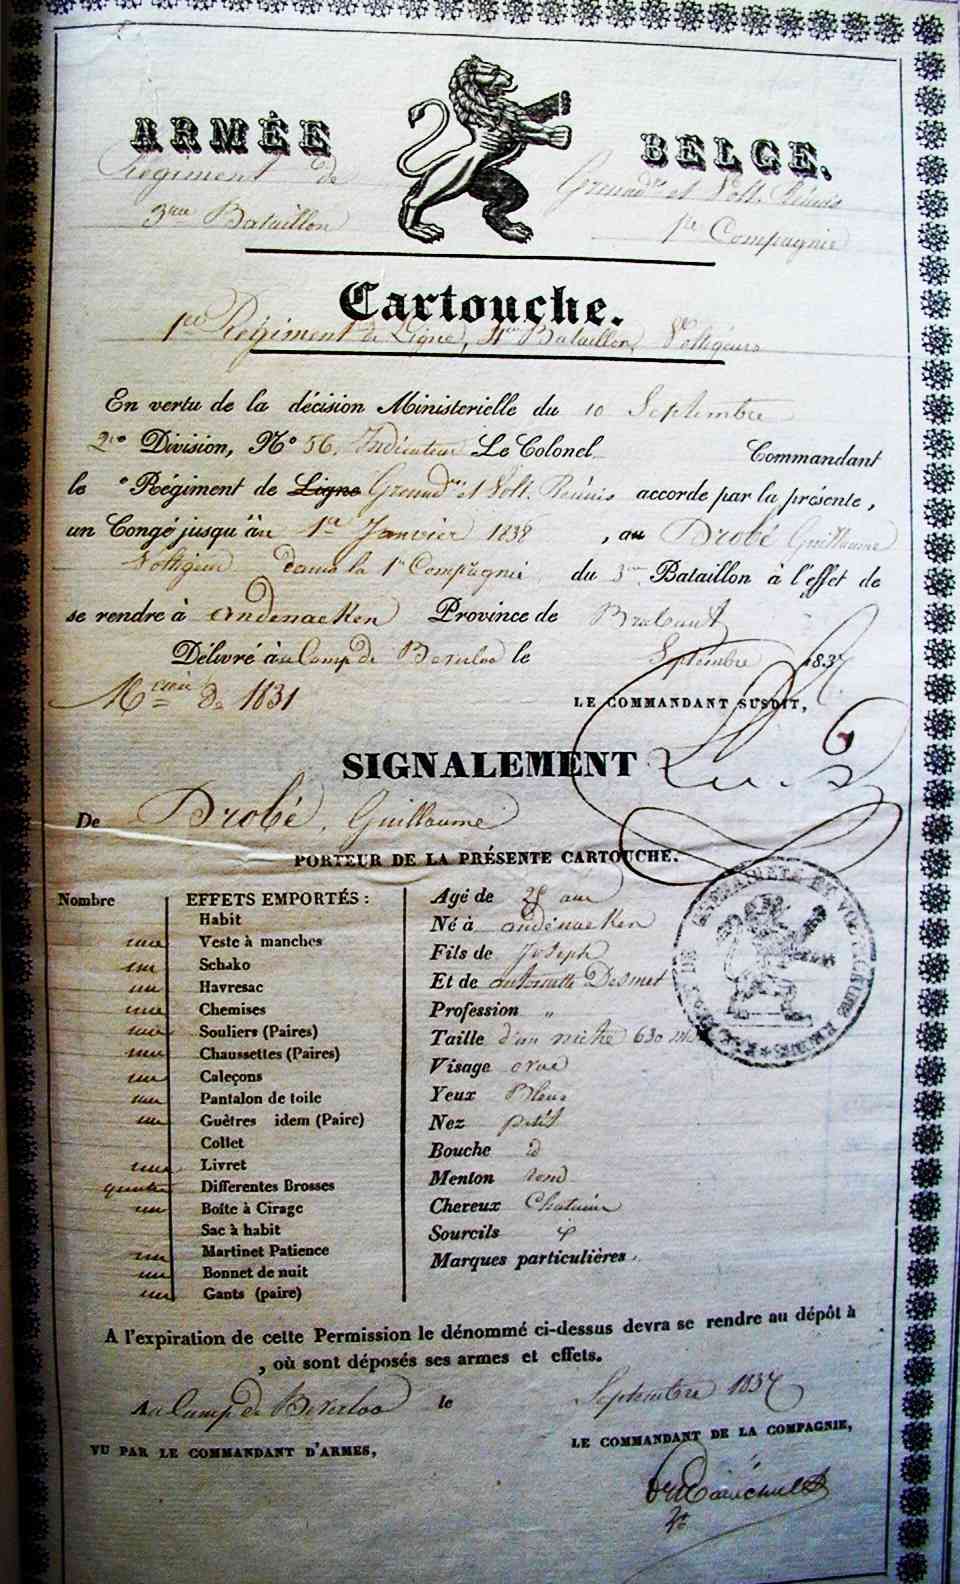 ARMÉE BELGE.
Régiment de Grenad.rs et Volt. Réunis
3me Bataillon 1re Compagnie
Cartouche.
1er Régiment de Ligne, 4me Bataillon, Voltigeurs
En vertu de la décision Ministerielle du 10 Septembre
2e Division, No 56, Indicateur Le Colonel Commandant
le e Régiment de Ligne Grenad.rs et Volt. Réunis accorde par la présente,
un Congé jusqu'au 1er Janvier 1838, au Drobé Guillaume
Voltigeur dans la 1re Compagnie du 3me Bataillon à l'effet de
se rendre à andenaeken Province de Brabant
Délivré au Camp de Beverloo le Septembre 1837
Mcie de 1831
LE COMMANDANT SUSDIT,
SIGNALEMENT
De Drobé, Guillaume
PORTEUR DE LA PRÉSENTE CARTOUCHE.
Nombre EFFETS EMPORTÉS :
Habit
une Veste à manches
un Schako
un Havresac
une Chemises
une Souliers (Paires)
une Chaussettes (Paires)
un Caleçons
un Pantalon de toile
une Guêtres idem (Paire)
Collet
une Livret
Differentes Brosses
un Boîte à Cirage
Sac à habit
un Martinet Patience
un Bonnet de nuit
un Gants (paire)
Agé de ans
Né à andenaeken
Fils de Joseph
Et de antoinette Desmet
Profession "
Taille d'un mètre 630 mill
Visage ovale
Yeux Bleus
Nez petit
Bouche id
Menton rond
Cheveux Chatain
Sourcils id
Marques particulières.
A l'expiration de cette Permission le dénommé ci-dessus devra se rendre au dépôt à
, où sont déposés ses armes et effets.
Au Camp de Beverloo le Septembre 1837
VU PAR LE COMMANDANT D'ARMES, LE COMMANDANT DE LA COMPAGNIE,